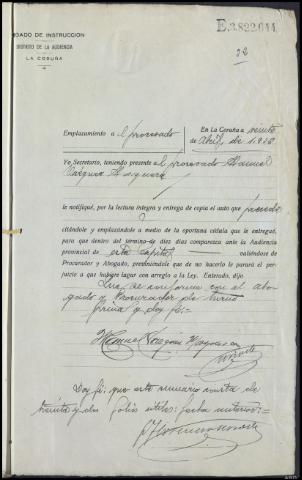 E.3.822.044
32
GADO DE INSTRUCCION
DISTRITO DE LA AUDIENCIA
LA CORUÑA
Emplazamiento a el procesado
En La Coruña a veinte
de Abril de 1.928
Yo Secretario, teniendo presente al procesado Manuel
Vázquez
le notifiqué, por la lectura íntegra y entrega de copia el auto que precede
citándole y emplazándole a medio de la oportuna cédula que le entregué,
para que dentro del término de diez días comparezca ante la Audiencia
provincial de esta Capital valiéndose
de Procurador y Abogado, previniéndole que de no hacerlo le parará el per-
juicio a que hubiere lugar con arreglo a la Ley. Enterado, dijo
Que se conforma con el abo-
gado y Procurador de turno
firma y doy fé.
Manuel Vazquez
Doy fé: que este sumario consta de
treinta y dos folios útiles: fecha anterior:=